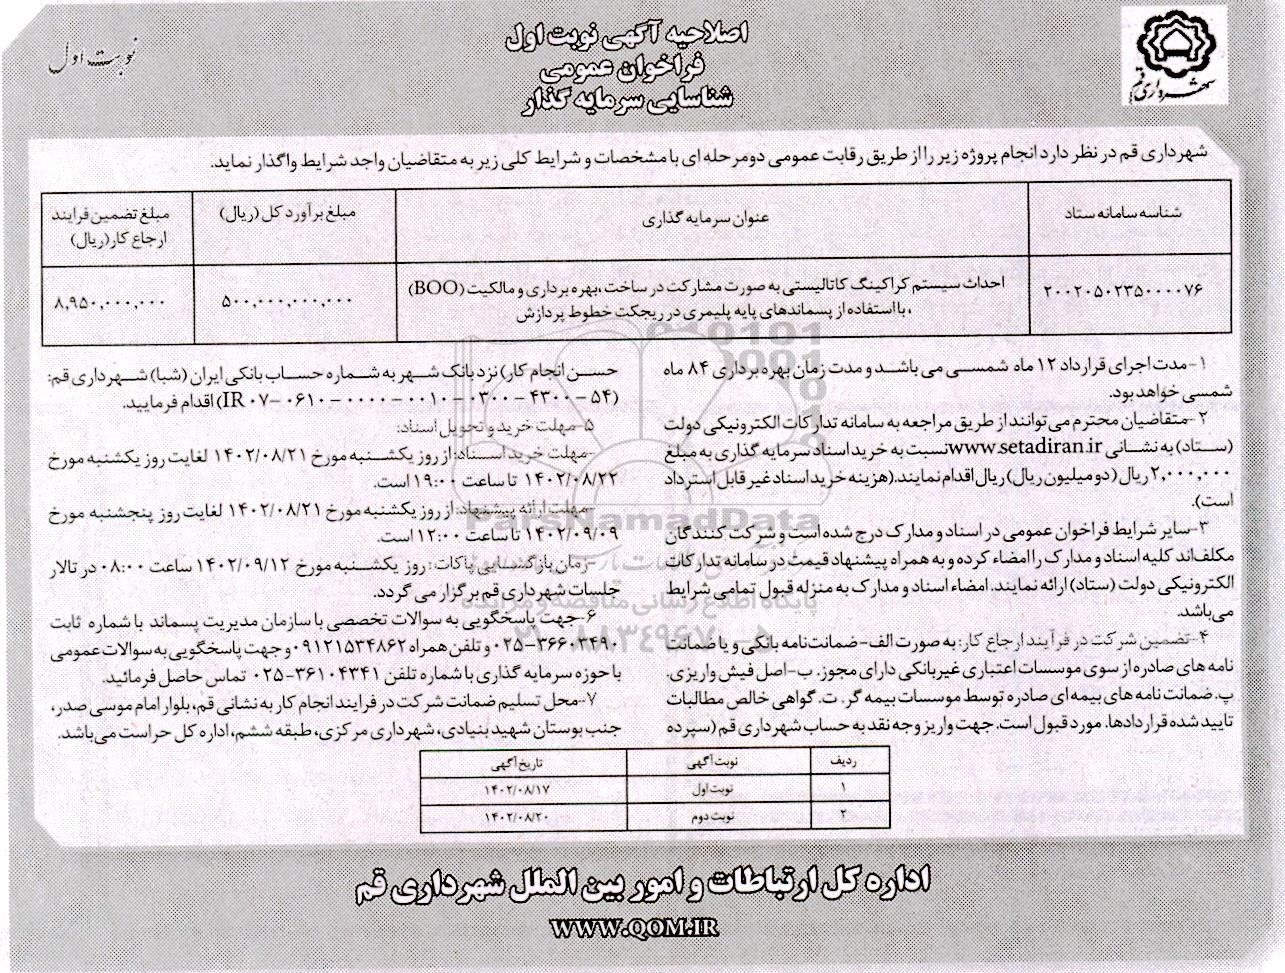 اصلاحیه آگهی نوبت اول
فراخوان عمومی
شناسایی سرمایه گذار
نوبت اول
شهرداری قم
شهرداری قم در نظر دارد انجام پروژه زیر را از طریق رقابت عمومی دومرحله ای با مشخصات و شرایط کلی زیر به متقاضیان واجد شرایط واگذار نماید.
شناسه سامانه ستاد
عنوان سرمایه گذاری
مبلغ برآورد کل (ریال)
مبلغ تضمین فرایند
ارجاع کار(ریال)
۲۰۰۲۰۵۰۲۳۵۰۰۰۰۷۶
احداث سیستم کراکینگ کاتالیستی به صورت مشارکت در ساخت ،بهره برداری و مالکیت (BOO)
، با استفاده از پسماندهای پایه پلیمری در ریجکت خطوط پردازش
۵۰۰,۰۰۰,۰۰۰,۰۰۰
۸,۹۵۰,۰۰۰,۰۰۰
۱-مدت اجرای قرارداد ۱۲ ماه شمسی می باشد و مدت زمان بهره برداری ۸۴ ماه
شمسی خواهد بود.
۲-متقاضیان محترم می توانند از طریق مراجعه به سامانه تدارکات الکترونیکی دولت
(ستاد) به نشانی www.setadiran.ir نسبت به خرید اسناد سرمایه گذاری به مبلغ
۲,۰۰۰,۰۰۰ ریال (دو میلیون ریال) ریال اقدام نمایند.(هزینه خرید اسناد غیر قابل استرداد
است).
۳-سایر شرایط فراخوان عمومی در اسناد و مدارک درج شده است و شرکت کنندگان
مکلف‌اند کلیه اسناد و مدارک را امضاء کرده و به همراه پیشنهاد قیمت در سامانه تدارکات
الکترونیکی دولت (ستاد) ارائه نمایند. امضاء اسناد و مدارک به منزله قبول تمامی شرایط
می باشد.
۴-تضمین شرکت در فرآیند ارجاع کار: به صورت الف-ضمانت‌نامه بانکی و یا ضمانت
نامه های صادره از سوی موسسات اعتباری غیربانکی دارای مجوز. ب-اصل فیش واریزی.
پ. ضمانت نامه های بیمه ای صادره توسط موسسات بیمه گر. ت. گواهی خالص مطالبات
تایید شده قراردادها. مورد قبول است. جهت واریز وجه نقد به حساب شهرداری قم (سپرده
حسن انجام کار) نزد بانک شهر به شماره حساب بانکی ایران (شبا) شهرداری قم:
(IR ۰۷-۰۶۱۰-۰۰۰۰-۰۰۱۰-۰۳۰۰-۴۳۰۰-۵۴) اقدام فرمایید.
۵-مهلت خرید و تحویل اسناد:
-مهلت خرید اسناد: از روز یکشنبه مورخ ۱۴۰۲/۰۸/۲۱ لغایت روز یکشنبه مورخ
۱۴۰۲/۰۸/۲۲ تا ساعت ۱۹:۰۰ است.
-مهلت ارائه پیشنهاد: از روز یکشنبه مورخ ۱۴۰۲/۰۸/۲۱ لغایت روز پنجشنبه مورخ
۱۴۰۲/۰۹/۰۹ تا ساعت ۱۲:۰۰ است.
-زمان بازگشایی پاکات: روز یکشنبه مورخ ۱۴۰۲/۰۹/۱۲ ساعت ۰۸:۰۰ در تالار
جلسات شهرداری قم برگزار می گردد.
۶-جهت پاسخگویی به سوالات تخصصی با سازمان مدیریت پسماند با شماره ثابت
۰۲۵-۳۶۶۰۳۴۹۰ و تلفن همراه ۰۹۱۲۱۵۳۴۸۶۲ و جهت پاسخگویی به سوالات عمومی
با حوزه سرمایه گذاری با شماره تلفن ۰۲۵-۳۶۱۰۴۳۴۱ تماس حاصل فرمائید.
۷-محل تسلیم ضمانت شرکت در فرایند انجام کار به نشانی قم، بلوار امام موسی صدر،
جنب بوستان شهید بنیادی، شهرداری مرکزی، طبقه ششم، اداره کل حراست می‌باشد.
ردیف نوبت آگهی تاریخ آگهی
۱ نوبت اول ۱۴۰۲/۰۸/۱۷
۲ نوبت دوم ۱۴۰۲/۰۸/۲۰
اداره کل ارتباطات و امور بین الملل شهرداری قم
WWW.QOM.IR
ParsNamadData
پایگاه اطلاع رسانی مناقصه و مزایده